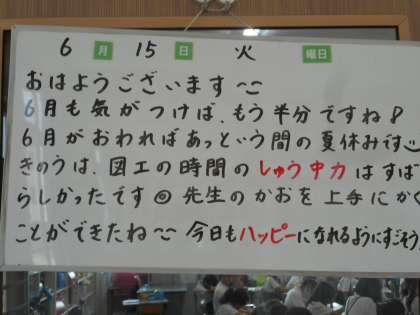 6月 15日 火曜日
おはようございます〜
6月も気がつけば、もう半分ですね
6月がおわればあっという間の夏休みです
きのうは、図工の時間のしゅう中力はすば
らしかったです◎先生のかおを上手にかく
ことができたね〜今日もハッピーになれるようにすごそう